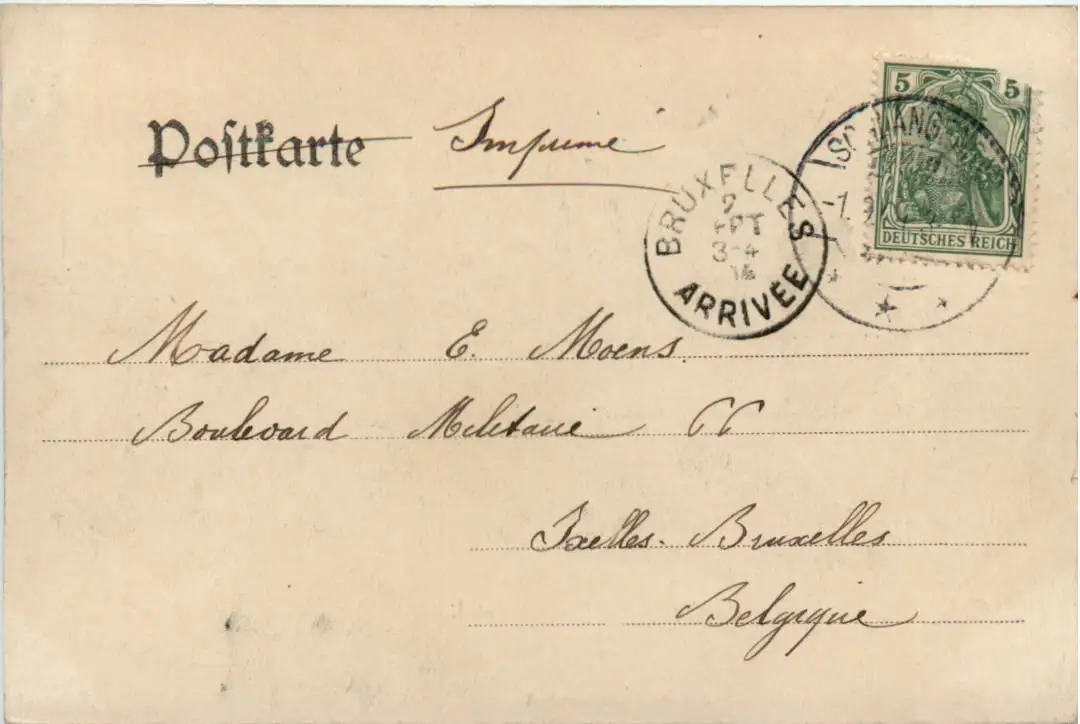 Postkarte Imprimé
5 5
DEUTSCHES REICH
BRUXELLES
3-4
ARRIVÉE
Madame E. Moens.
Boulevard Militaire 66
Ixelles-Bruxelles
Belgique